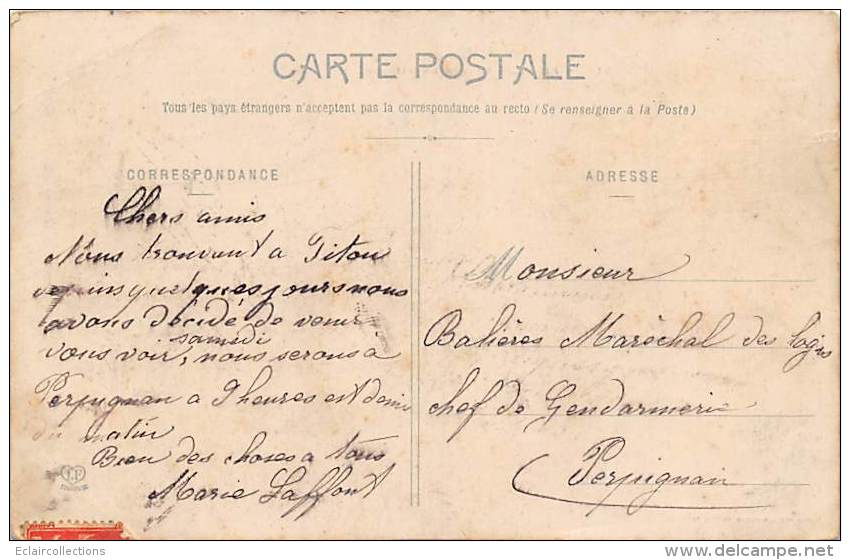 CARTE POSTALE
Tous les pays étrangers n'acceptent pas la correspondance au recto (Se renseigner à la Poste)
CORRESPONDANCE
Chers amis
Nous trouvant a Fitou
depuis quelques jours nous
avons décidé de venir
samedi
vous voir, nous serons à
Perpignan a 9 heures est demi
du matin
Bien des choses a tous
Marie Laffont
ADRESSE
Monsieur
Balières Maréchal des logis
chef de Gendarmerie
Perpignan
Eclaircollections
delcampe.net